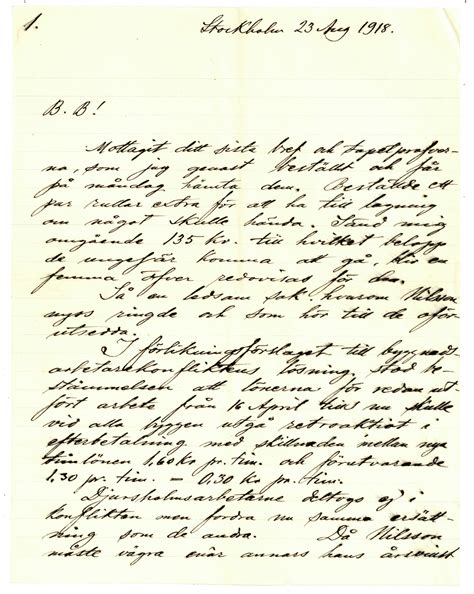 1.
Stockholm 23 Aug 1918.
B. B!
Mottagit ditt sista bref och tapetprofver-
na, som jag genast beställt och får
på måndag hämta dem. Beställde ett
par rullar extra för att ha till lagning
om något skulle hända. Sänd mig
omgående 135 Kr. till hvilket belopp
de ungefär komma att gå, blir en
femma öfver redovisas för den.
Så en ledsam sak, hvarom Nilsson
nyss ringde och som hör till de oför-
utsedda.
I förlikningsförslaget till byggnads-
arbetarekonfliktens lösning, stod be-
stämmelsen att lönerna för redan ut-
fört arbete från 16 April till nu skulle
vid alla byggen utgå retroaktivt i
efterbetalning med skillnaden mellan nya
timlönen 1,60 Kr pr. tim. och förutvarande
1,30 pr. tim. = 0,30 Kr pr. tim.
Djursholmsarbetarne deltogo ej i
konflikten men fordra nu samma ersätt-
ning som de andra. Då Nilsson
måste vägra enär annars hans årsvinst